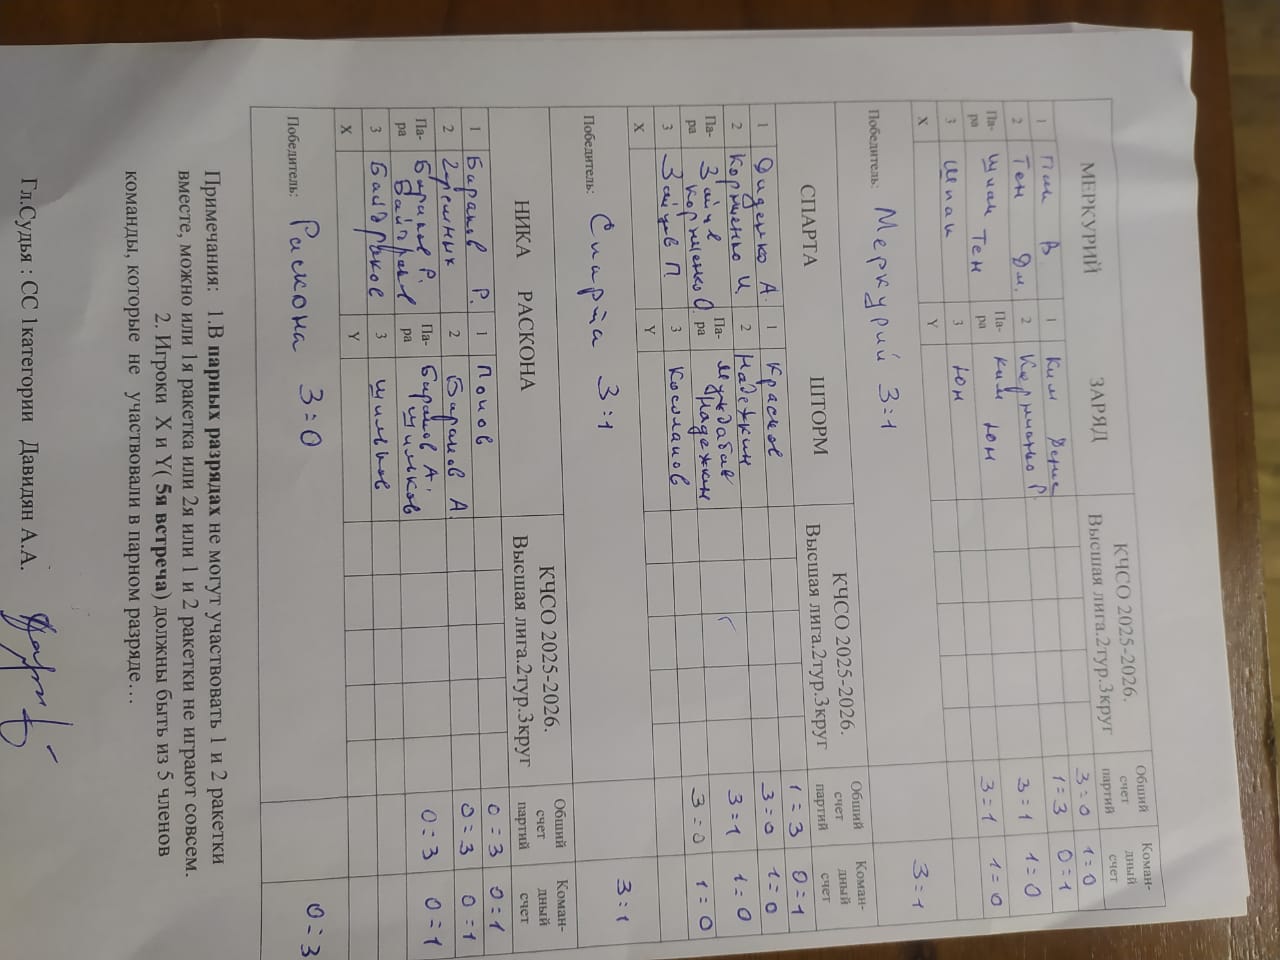 МЕРКУРИЙ ЗАРЯД КЧСО 2025-2026. Высшая лига.2тур.3круг Общий счет партий Коман-дный счет
1 Пак В 1 Ким Денис 3=0 1=0
2 Тен Дм. 2 Р. 1=3 0=1
Па-ра Шпак Тен Па-ра Ким Юн 3=1 1=0
3 Шпак 3 Юн 3=1 1=0
X Y
Победитель: Меркурий 3=1 3=1
СПАРТА ШТОРМ КЧСО 2025-2026. Высшая лига.2тур.3круг Общий счет партий Коман-дный счет
1 Диденко А. 1 Краснов 1=3 0=1
2 Корниенко И. 2 Надежкин 3=0 1=0
Па-ра Зайцев Корниенко О. Па-ра Надежкин 3=1 1=0
3 Зайцев П 3 Косолапов 3=0 1=0
X Y
Победитель: Спарта 3=1 3=1
НИКА РАСКОНА КЧСО 2025-2026. Высшая лига.2тур.3круг Общий счет партий Коман-дный счет
1 Баранов Р. 1 Попов 0=3 0=1
2 2 Баранов А. 0=3 0=1
Па-ра Баранов Р. Па-ра Баранов А. Шильков 0=3 0=1
3 3 Шильков
X Y
Победитель: Раскона 3=0 0=3
Примечания: 1.В парных разрядах не могут участвовать 1 и 2 ракетки
вместе, можно или 1я ракетка или 2я или 1 и 2 ракетки не играют совсем.
2. Игроки X и Y( 5я встреча) должны быть из 5 членов
команды, которые не участвовали в парном разряде…
Гл.Судья : СС 1категории Давидян А.А.